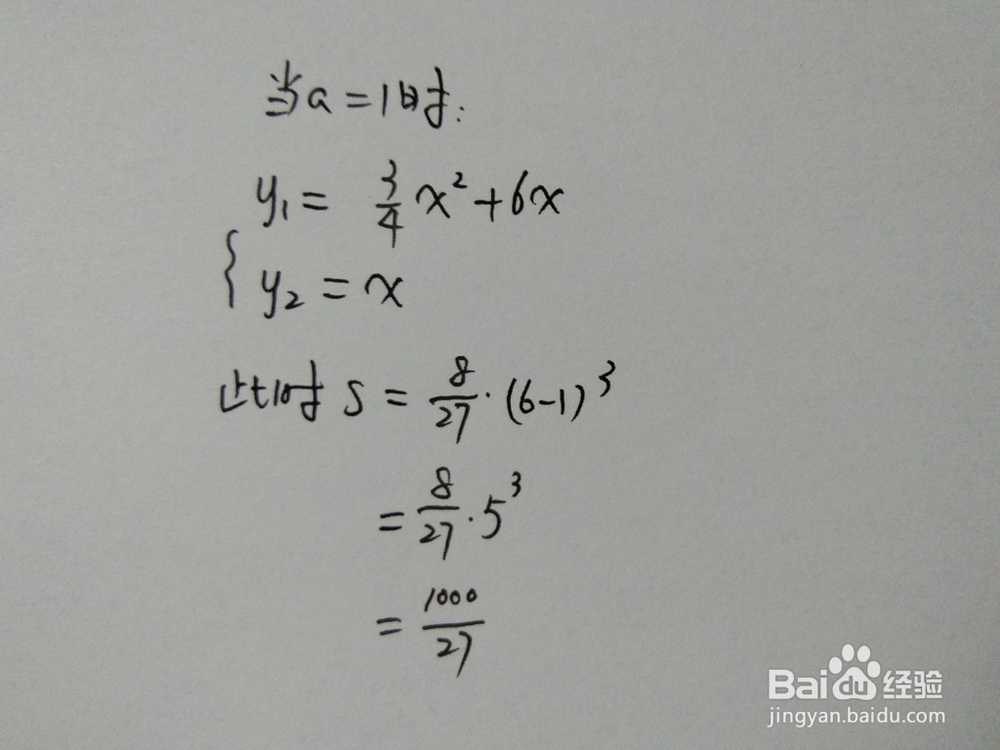 当a=1时:
y₁= 3/4 x²+6x
{ y₂=x
此时 S = 8/27·(6-1)³
= 8/27·5³
= 1000/27
Baidu经验
jingyan.baidu.com